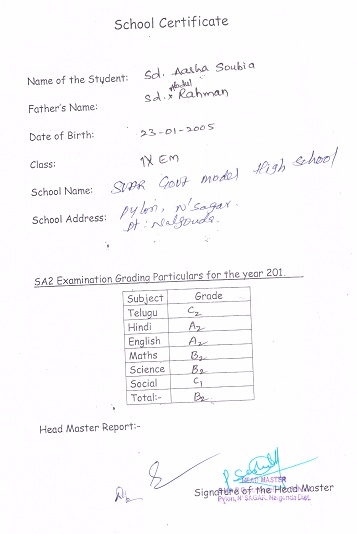 School Certificate
Name of the Student: Sd. Aasha Soubia
Father's Name: Sd. Abdul Rahman
Date of Birth: 23-01-2005
Class: IX EM
School Name: SVPR Govt model High school
School Address: Pylon, N'sagar.
Dt: Nalgonda.
SA2 Examination Grading Particulars for the year 201
Subject Grade
Telugu C2
Hindi A2
English A2
Maths B2
Science B2
Social C1
Total:- B2
Head Master Report:-
HEAD MASTER
Signature of the Head Master
Pylon, N' SAGAR, Nalgonda Dist.